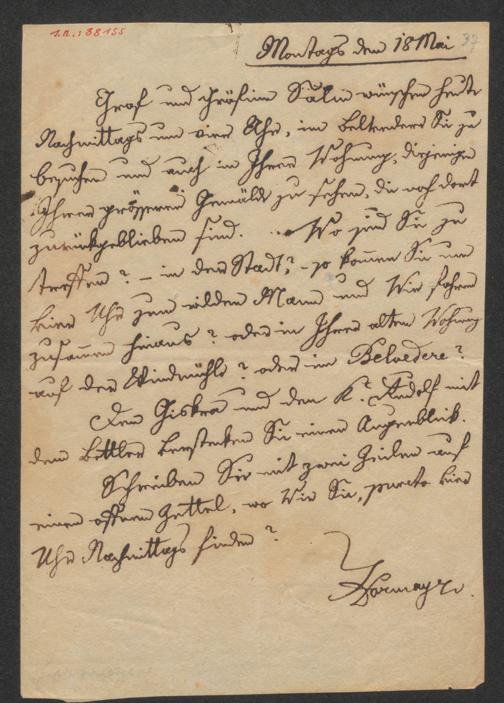 I.N.: 38155
37
Montags den 18 Mai
Graf und Gräfinn Salm wünschen heute
Nachmittags um vier Uhr, im Belvedere Sie zu
besuchen und auch in Ihrer Wohnung, diejenigen
Ihrer grösseren Gemälde zu sehen, die noch dort
zurückgeblieben sind. Wo sind Sie zu
treffen? – in der Stadt? – so kommen Sie um
vier Uhr zum wilden Mann und Wir fahren
zusammen hinaus? oder in Ihrer alten Wohnung
auf der Windmühle? oder im Belvedere?
Den Giskra und den K. Rudolf mit
dem Bettler verstecken Sie einen Augenblick.
Schreiben Sie mit zwei Zeilen auf
einen offenen Zettel, wo Wir Sie, puncto vier
Uhr Nachmittags finden?
Hormayr